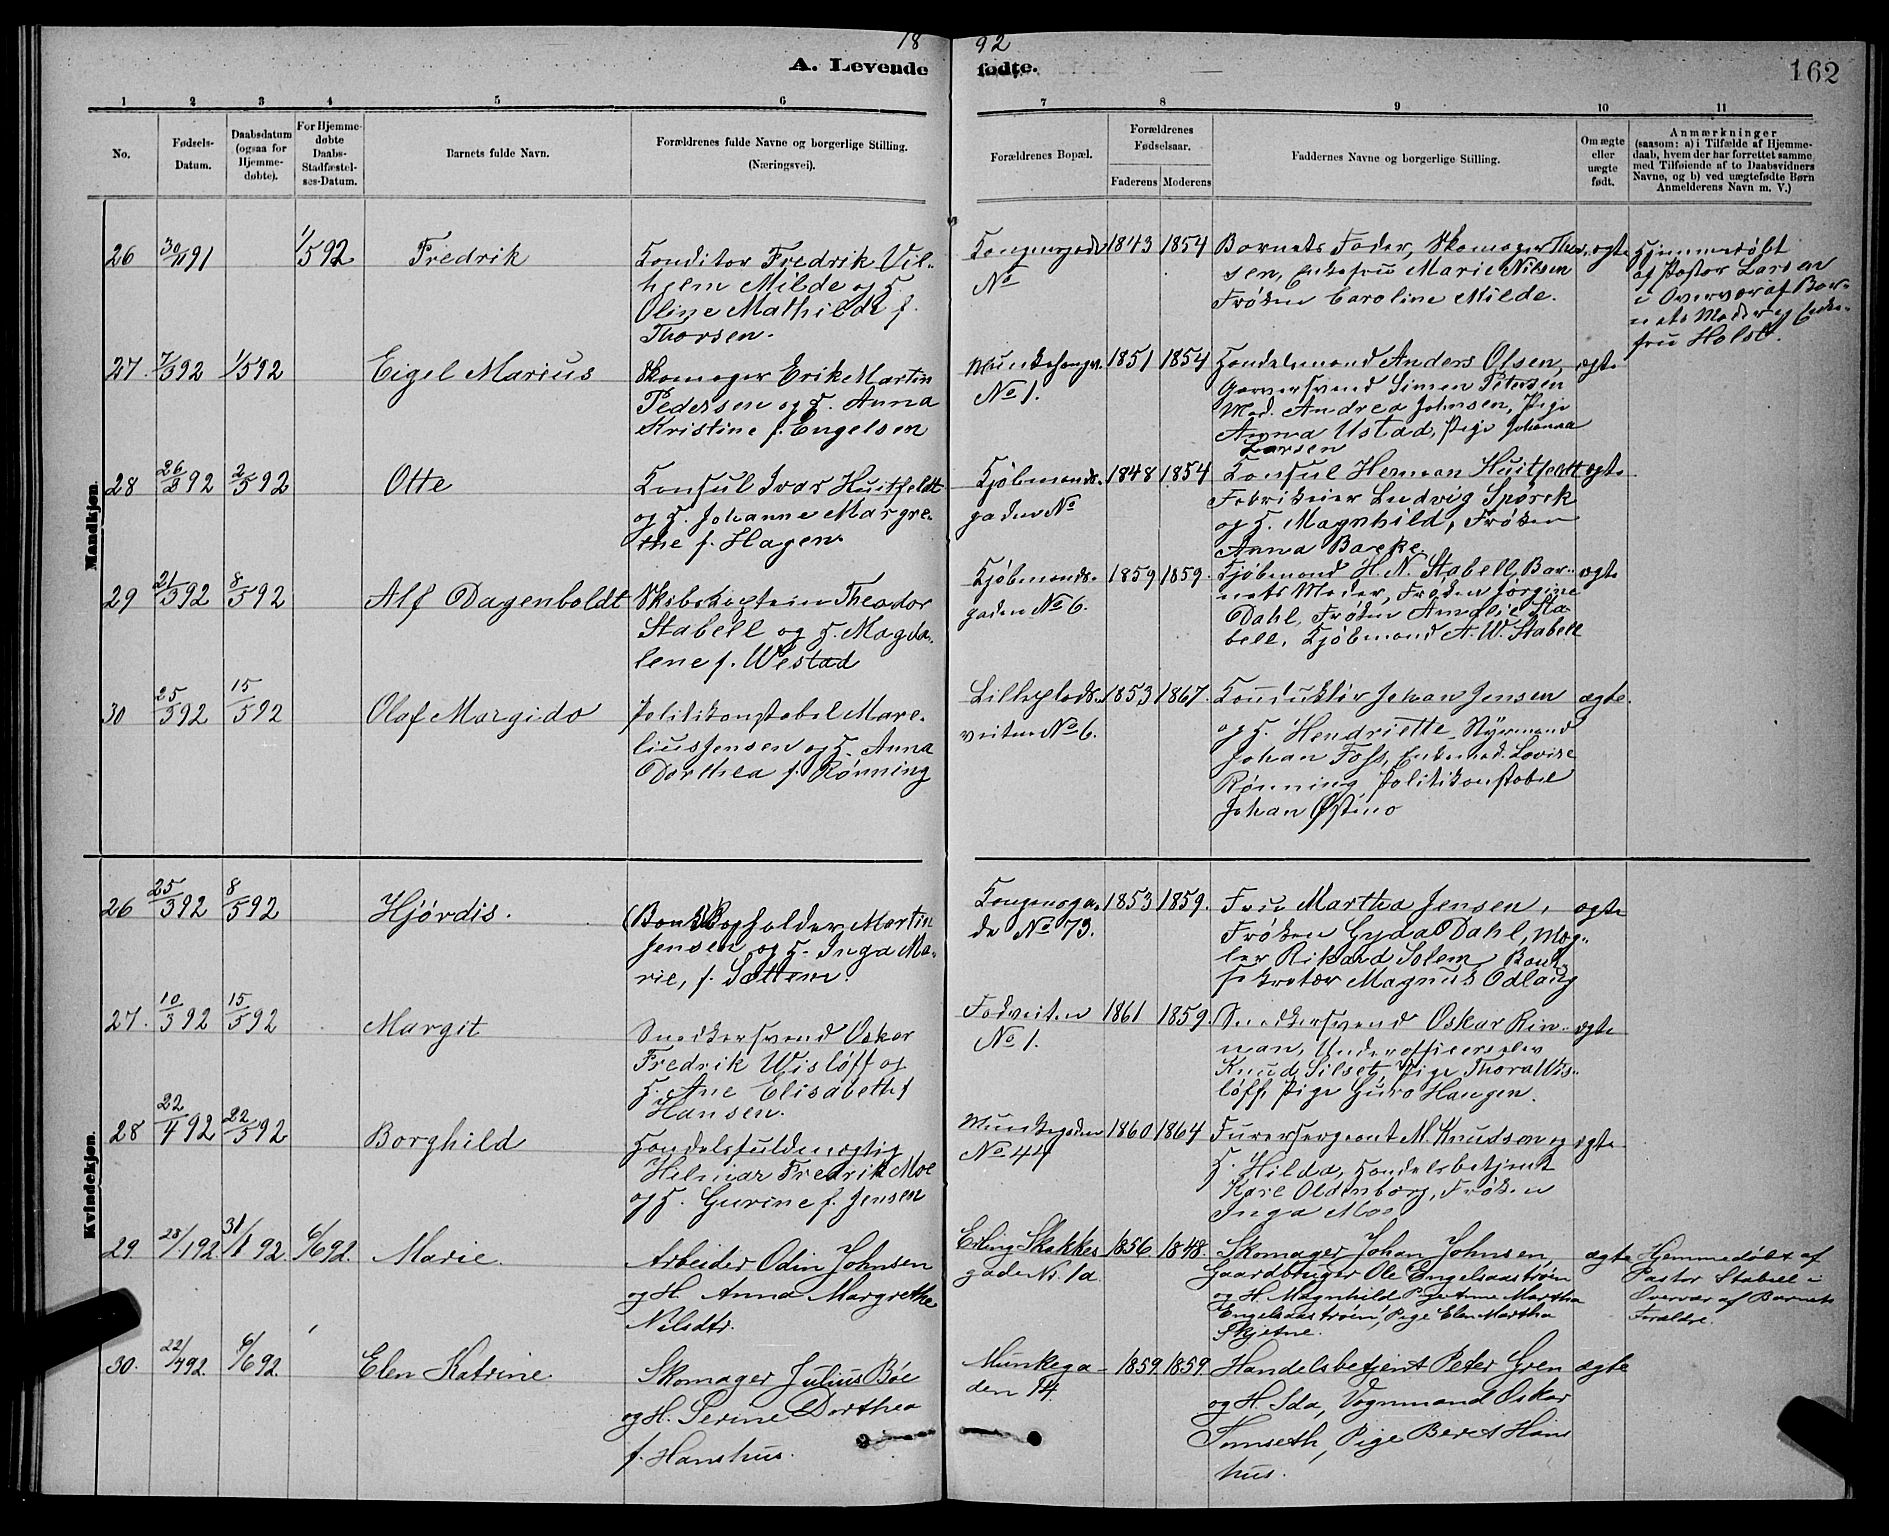 18 92
A. Levende fødte.
162
1 2 3 4 5 6 7 8 9 10 11
No.
Fødsels-
Datum.
Daabsdatum
(ogsaa for
Hjemme-
døbte).
For Hjemme-
døbte
Daabs-
Stadfæstel-
ses-Datum.
Barnets fulde Navn.
Forældrenes fulde Navne og borgerlige Stilling.
(Næringsvei).
Forældrenes Bopæl.
Forældrenes
Fødselsaar.
Faderens Moderens
Faddernes Navne og borgerlige Stilling.
Om ægte
eller
uægte
født.
Anmærkninger
(saasom: a) i Tilfælde af Hjemme-
daab, hvem der har forrettet samme
med Tilføiende af to Daabsvidners
Navne, og b) ved uægtefødte Børn
Anmelderens Navn m. V.)
Mandkjøn.
26 30/11 91 1/5 92 Fredrik
Konditor Fredrik Vil-
helm Milde og H.
Oline Mathilde f.
Thorsen.
Kongensgade
No
1843 1854
Barnets Fader, Skomager Thor-
sen, Enkefru Marie Nilsen
Frøken Caroline Milde.
ægte
Hjemmedøbt
af Pastor Larsen
i Overvær af Bar-
nets Moder og Enke-
fru Holst.
27. 7/3 92 1/5 92 Eigel Marius
Skomager Erik Martin
Pedersen og H. Anna
Kristine f. Engelsen
No 1.
1851 1854
Handelsmand Anders Olsen,
Garversvend Simen Petersen
Mad. Andrea Johnsen, Pige
Anna Ustad, Pige Johanna
Larsen
ægte
28 26/2 92 2/5 92 Otte
Konsul Ivar Huitfeldt
og H. Johanne Margre-
the f. Hagen
Kjøbmands-
gaden No
1848 1854
Konsul Herman Huitfeldt
Fabrikeier Ludvig Sporck
og H. Magnhild, Frøken
Anna Barke.
ægte
29 21/3 92 8/5 92 Alf Dagenboldt
Skibskaptein Theodor
Stabell og H. Magda-
lene f. Westad
Kjøbmands-
gaden No 6.
1859 1859.
Kjøbmand H. N. Stabell, Bar-
nets Moder, Frøken Jørgine
Dahl, Frøken Amalie Sta-
bell, Kjøbmand A. W. Stabell
ægte
30 25/3 92 15/5 92 Olaf Margido
Politikonstabel Mare-
lius Jensen og H. Anna
Dorthea f. Rønning
Lilleplads-
veiten No 6.
1853 1867.
Konduktør Johan Jensen
og H. Hendriette, Styrmand
Johan Foss, Enkemad. Lovise
Rønning, Politikonstabel
Johan Østmo
ægte.
Kvindekjøn.
26 25/3 92 8/5 92 Hjørdis.
(Bank)Bogholder Martin
Jensen og H. Inga Ma-
rie, f. Sættem.
Kongensga-
de No 73.
1853 1859.
Fru Martha Jensen,
Frøken Gyda Dahl, Mæg-
ler Rikard Solem, Bank
sekretær Magnus Odlaug
ægte
27. 10/3 92 15/5 92 Margit
Snedkersvend Oskar
Fredrik Wisløff og
H. Ane Elisabeth f
Hansen.
Fodveiten
No 1.
1861 1859.
Snedkersvend Oskar Rin-
nan, Underofficerselev
Knud Silset, Pige Thora Wis-
løff, Pige Guro Haugen.
ægte
28 22/4 92 22/5 92 Borghild
Handelsfuldmægtig
Helmar Fredrik Moe
og H. Gurine f. Jensen
Munkegaden
No 44
1860 1864
Furersergeant M. Knudson og
H. Hilda, Handelsbetjent
Karl Oldenborg, Frøken
Inga Moe
ægte
29. 28/1 92 31/1 92. 6/6 92. Marie.
Arbeider Odin Johnsen
og H. Anna Margrethe
Nilsdtr.
Erling Skakkes
gade Nr. 1a
1856 1848.
Skomager Johan Johnsen,
Gaardbruger Ole Engelsaastrøen
og H. Magnhild Pige Anne Martha
Engelsaastrøen, Pige Elen Martha
Skjetne.
ægte
Hemmedøbt af
Pastor Stabell i
Overvær af Barnets
Forældre.
30. 22/4 92. 6/6 92. Elen Katrine
Skomager Julius Böe
og H. Serine Dorthea
f. Hanshus.
Munkega-
den 14
1859 1859
Handelsbetjent Peter Gren
og H. Ida, Vognmand Oskar
Tomseth, Pige Beret Hans
hus.
ægte